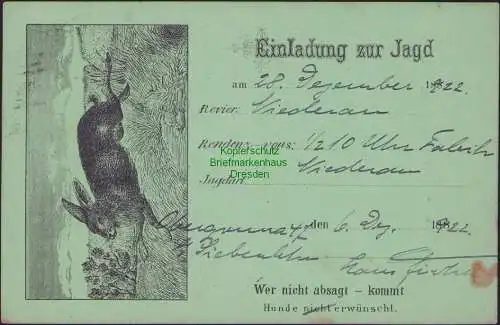 Einladung zur Jagd
am 28. Dezember 1922.
Revier: Niederau
Rendez-vous: 1/2 10 Uhr Fabrik
Niederau
Jagdart
Kopierschutz
Briefmarkenhaus
Dresden
den 6. Dez. 1922.
Siebenlehn
Wer nicht absagt – kommt
Hunde nicht erwünscht.